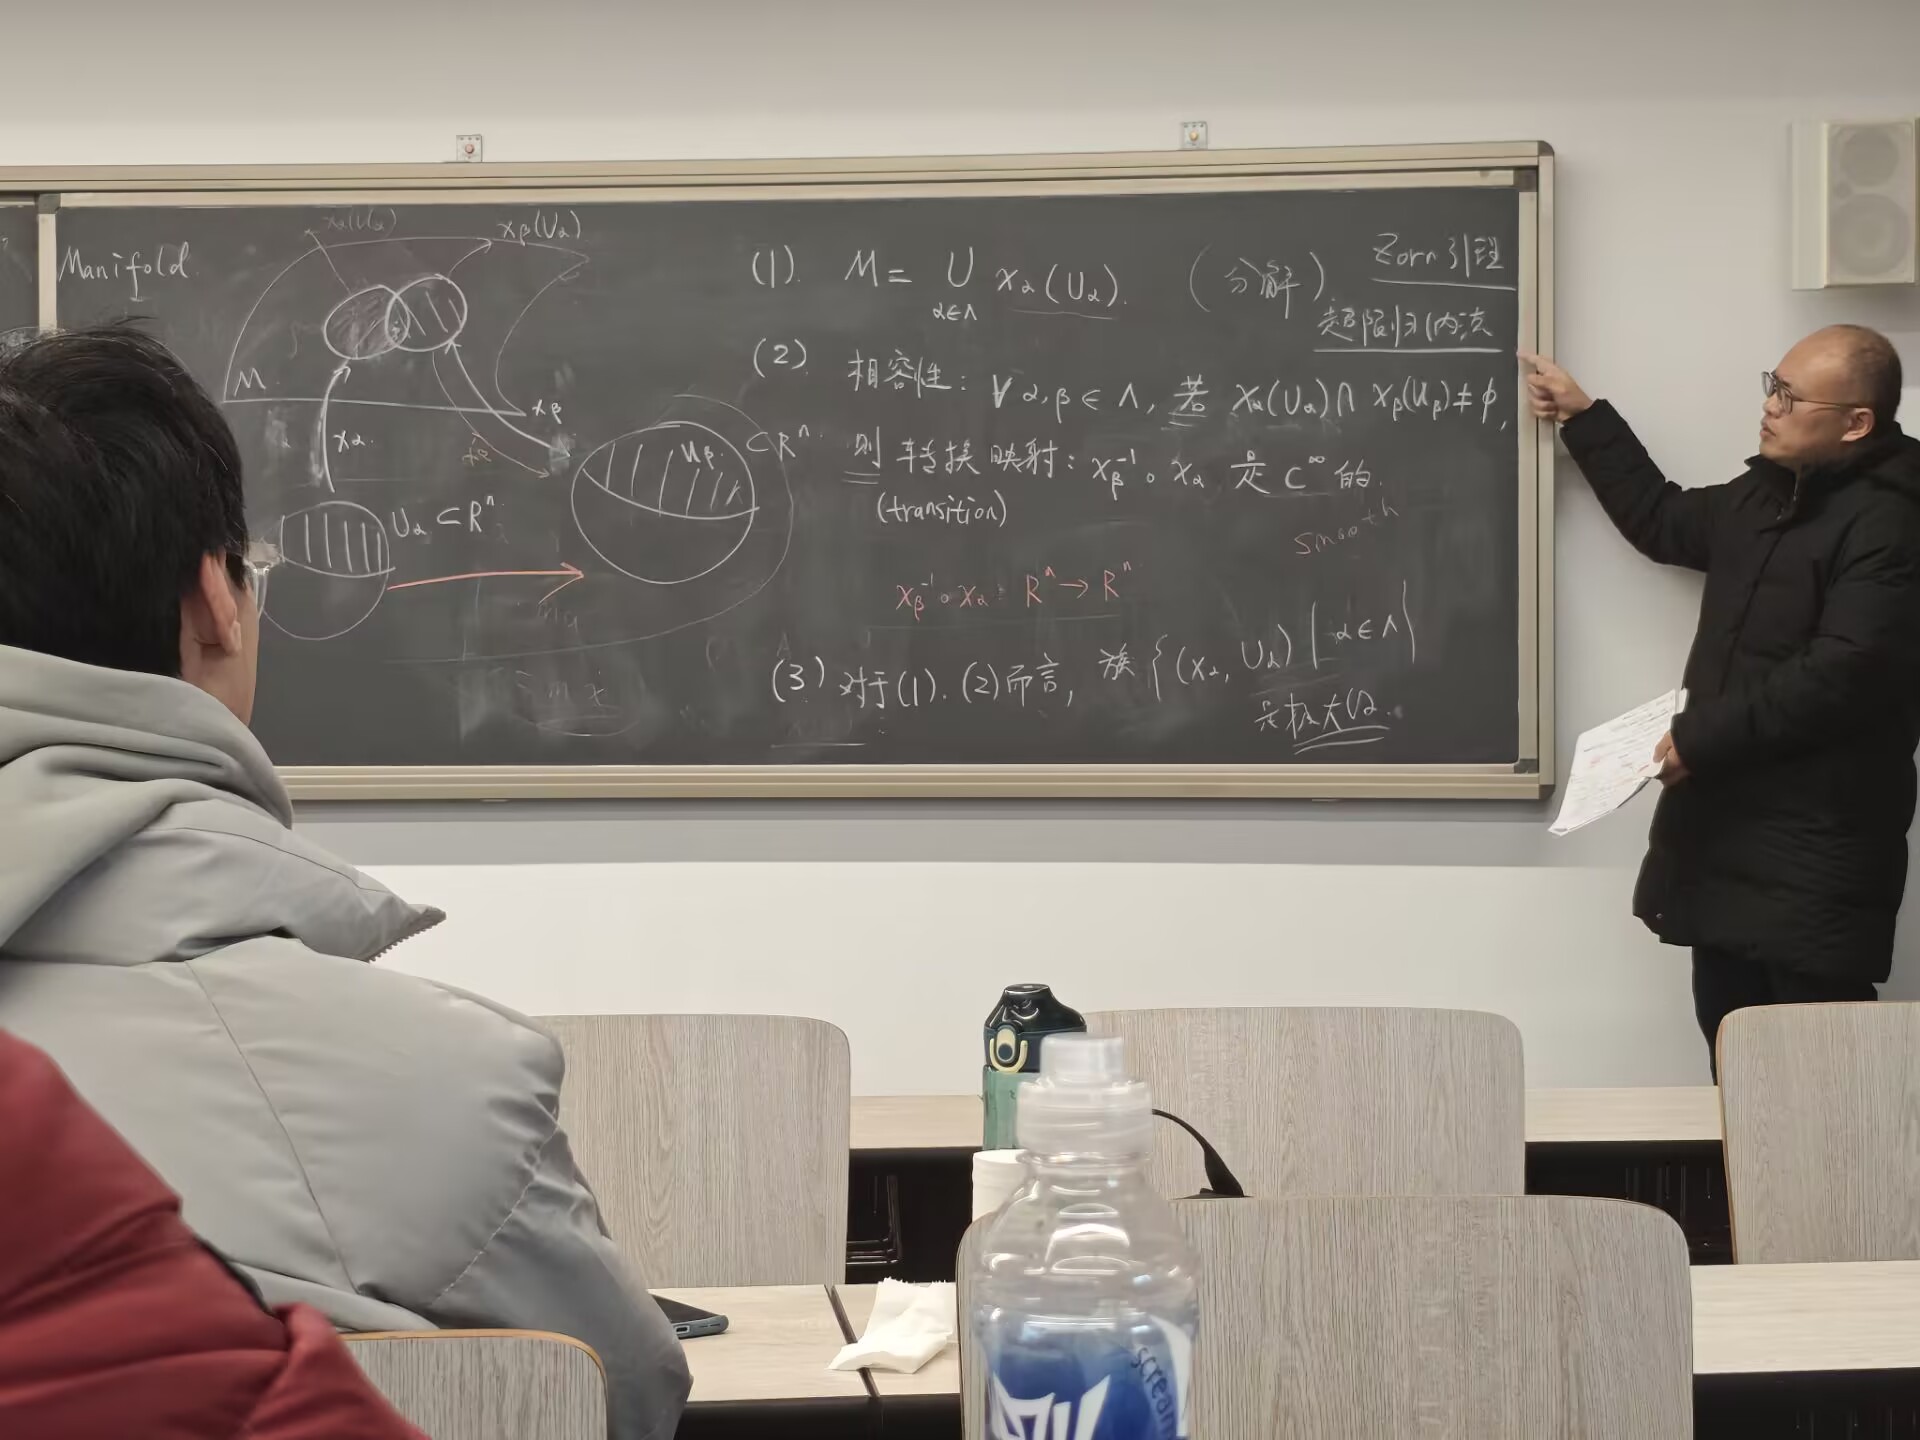 Manifold.
xα(Uα)
xβ(Uα)
M.
xα.
xβ
Uα ⊂ Rⁿ
Uβ. ⊂ Rⁿ.
(1). M = ∪ xα(Uα). (分解).
α∈Λ
Zorn引理
超限归纳法
(2) 相容性: ∀α,β∈Λ, 若 xα(Uα)∩xβ(Uβ)≠φ,
则 转换映射: xβ⁻¹∘xα 是 C^∞ 的.
(transition)
smooth
xβ⁻¹∘xα: Rⁿ→Rⁿ
(3) 对于(1).(2)而言, 族{(xα, Uα)|α∈Λ}
是极大的.
scream